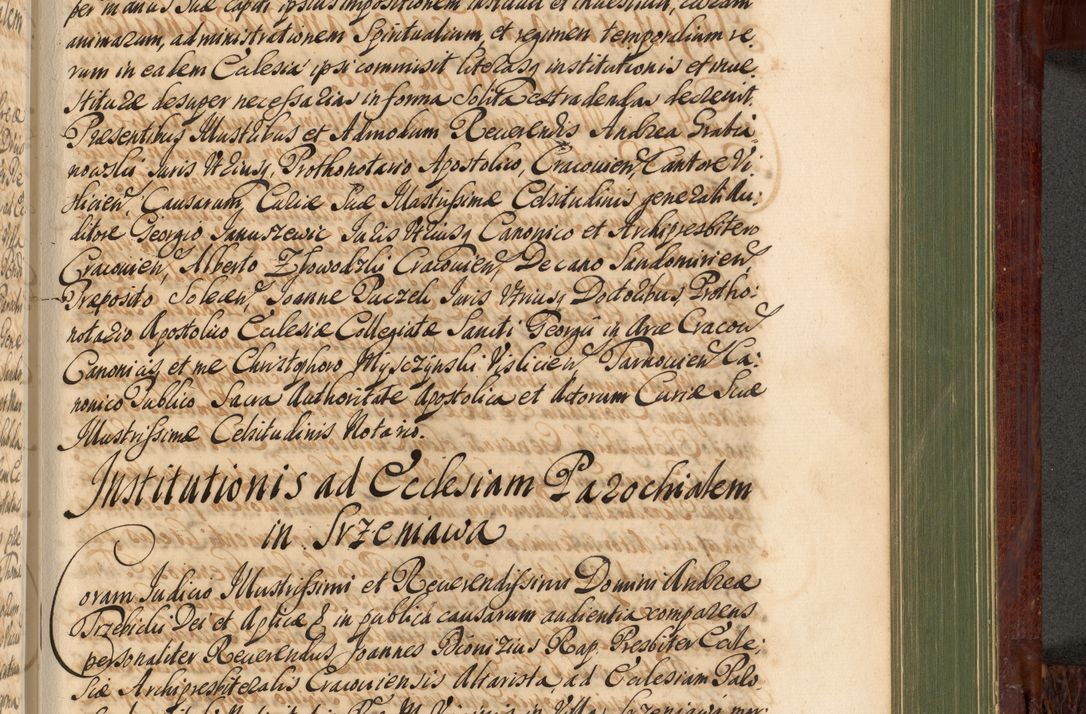 per manus suæ capiti ipsius impositionem instituit et inuestiuit, curam
animarum, administrationem Spiritualium, et regimen temporalium re,
rum in eadem Ecclesia ipsi commisit literasq institutionis et inue
stituræ desuper necessarias in forma solita extradendas decreuit.
Præsentibus Illustribus et Admodum Reuerendis Andrea Grabia
nowski Iuris Vtriusq, Prothonotario Apostolico, Cracouien, Cantore Vi:
slicien, Causarum, Curiæ Suæ Illustrissimæ Celsitudinis generali Au:
ditore Georgio Januszewic Iuris Vtriusq Canonico et Archipresbitero
Cracouien, Alberto Cracouien, Decano Sandomirien
Præposito Solecen, Joanne Paczeli Iuris Vtriusq Doctoribus, Protho:
notario Apostolico Ecclesiæ Collegiatæ Sancti Georgii in Arce Cracou
Canonicis et me Christophoro Mysczynski Vislicien, Tarnouien Ca:
nonico Publico Sacra Authoritate Apostolica et Actorum Curiæ Suæ
Illustrissimæ Celsitudinis Notario.
Institutionis ad Ecclesiam Parochialem
in Srzeniawa
Coram Iudicio Illustrissimi et Reuerendissimi Domini Andreæ
Trzebicki Dei et Aplicæ & in publica causarum audientia comparens
personaliter Reuerendus Joannes Dionizius Rap. Presbiter Eccle:
siæ Archipresbiteralis Cracouiensis Altarista, ad Ecclesiam Paro-
in Villa Srzeniawa